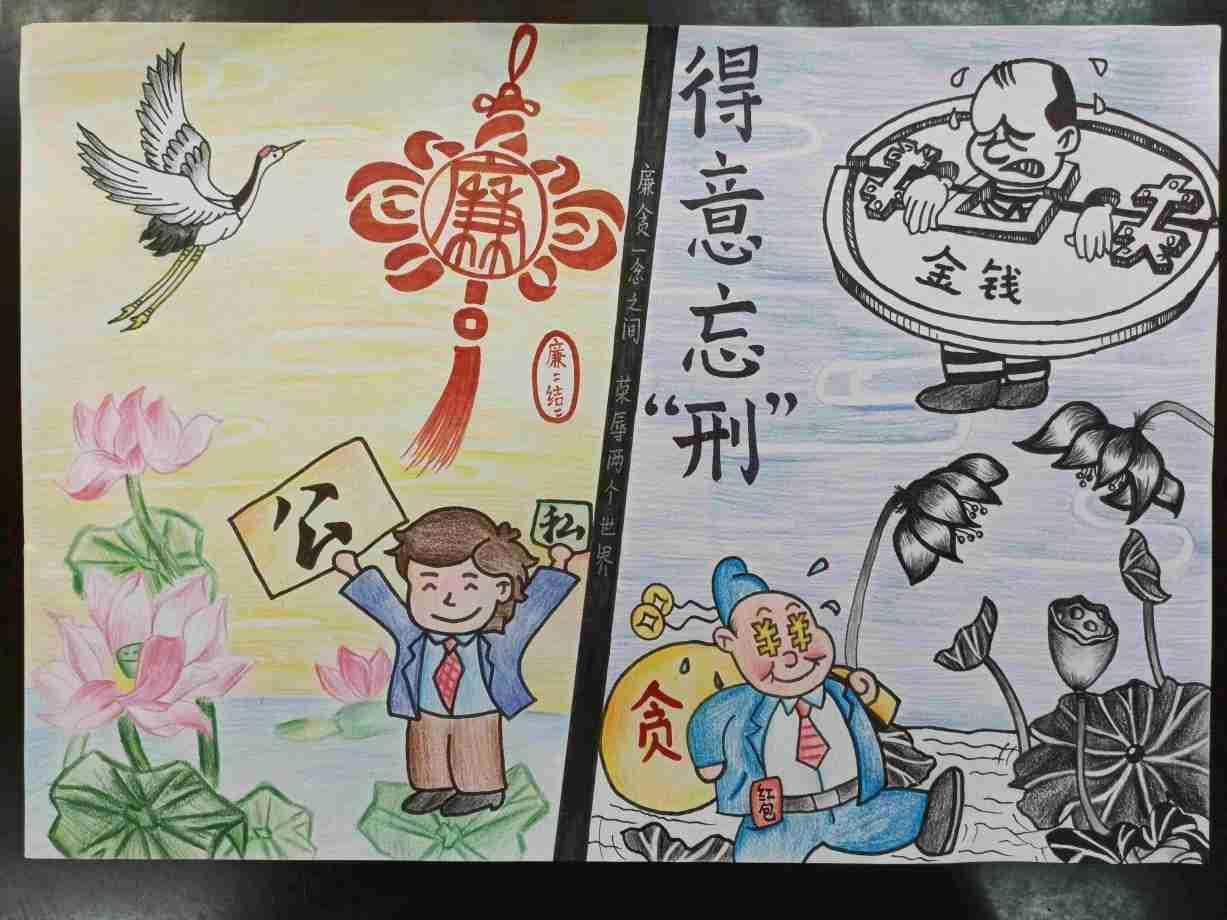 廉
廉〻结〻
公
私
廉贪一念之间 荣辱两个世界
得意忘“刑”
金钱
¥¥
贪
红包